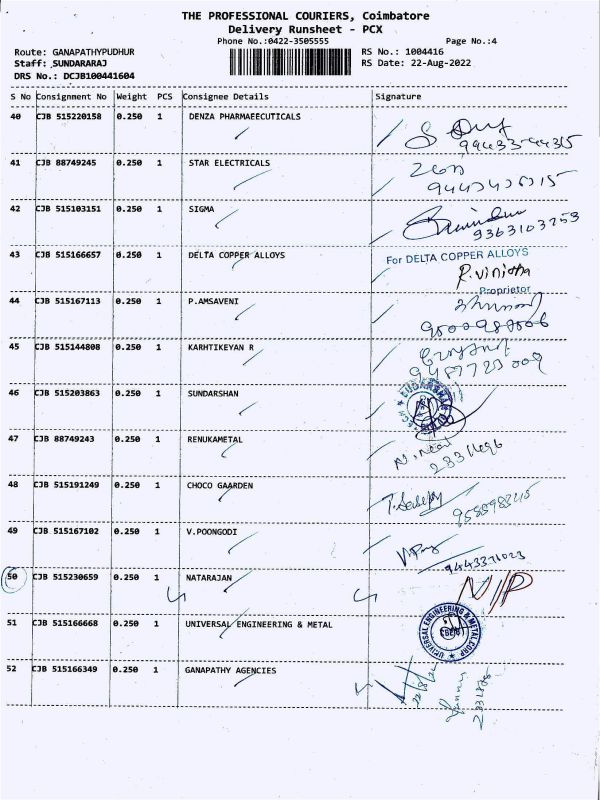 THE PROFESSIONAL COURIERS, Coimbatore
Delivery Runsheet - PCX
Phone No.:0422-3505555
Page No.:4
Route: GANAPATHYPUDHUR
RS No.: 1004416
Staff: SUNDARARAJ
RS Date: 22-Aug-2022
DRS No.: DCJB100441604
S No Consignment No Weight PCS Consignee Details Signature
40 CJB 515220158 0.250 1 DENZA PHARMAEECUTICALS
41 CJB 88749245 0.250 1 STAR ELECTRICALS
42 CJB 515103151 0.250 1 SIGMA
9363103253
43 CJB 515166657 0.250 1 DELTA COPPER ALLOYS
For DELTA COPPER ALLOYS
Proprietor
44 CJB 515167113 0.250 1 P.AMSAVENI
45 CJB 515144808 0.250 1 KARHTIKEYAN R
46 CJB 515203863 0.250 1 SUNDARSHAN
47 CJB 88749243 0.250 1 RENUKAMETAL
48 CJB 515191249 0.250 1 CHOCO GAARDEN
49 CJB 515167102 0.250 1 V.POONGODI
9443371023
50 CJB 515230659 0.250 1 NATARAJAN
N/P
51 CJB 515166668 0.250 1 UNIVERSAL ENGINEERING & METAL
UNIVERSAL ENGINEERING & METAL CORP
CBE-6
52 CJB 515166349 0.250 1 GANAPATHY AGENCIES